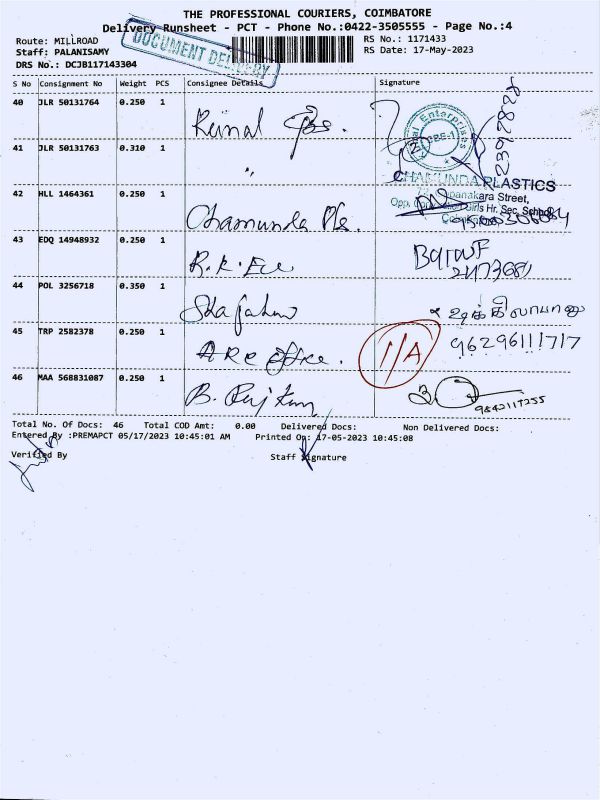 THE PROFESSIONAL COURIERS, COIMBATORE
Delivery Runsheet - PCT - Phone No.:0422-3505555 - Page No.:4
Route: MILLROAD
RS No.: 1171433
Staff: PALANISAMY
RS Date: 17-May-2023
DRS No.: DCJB117143304
DOCUMENT DELIVERY
S No Consignment No Weight PCS Consignee Details Signature
40 JLR 50131764 0.250 1
Enterprises
41 JLR 50131763 0.310 1 "
CHAMUNDA PLASTICS
42 HLL 1464361 0.250 1 Chamunda Pls.
Street,
Girls Hr. Sec. School
43 EDQ 14948932 0.250 1 R.K. Ece
44 POL 3256718 0.350 1
45 TRP 2582378 0.250 1 A R C Office. I/A 96296111717
46 MAA 568831087 0.250 1 B. Raj Kumar
9842117255
Total No. Of Docs: 46 Total COD Amt: 0.00 Delivered Docs: Non Delivered Docs:
Entered By :PREMAPCT 05/17/2023 10:45:01 AM Printed On: 17-05-2023 10:45:08
Verified By Staff Signature